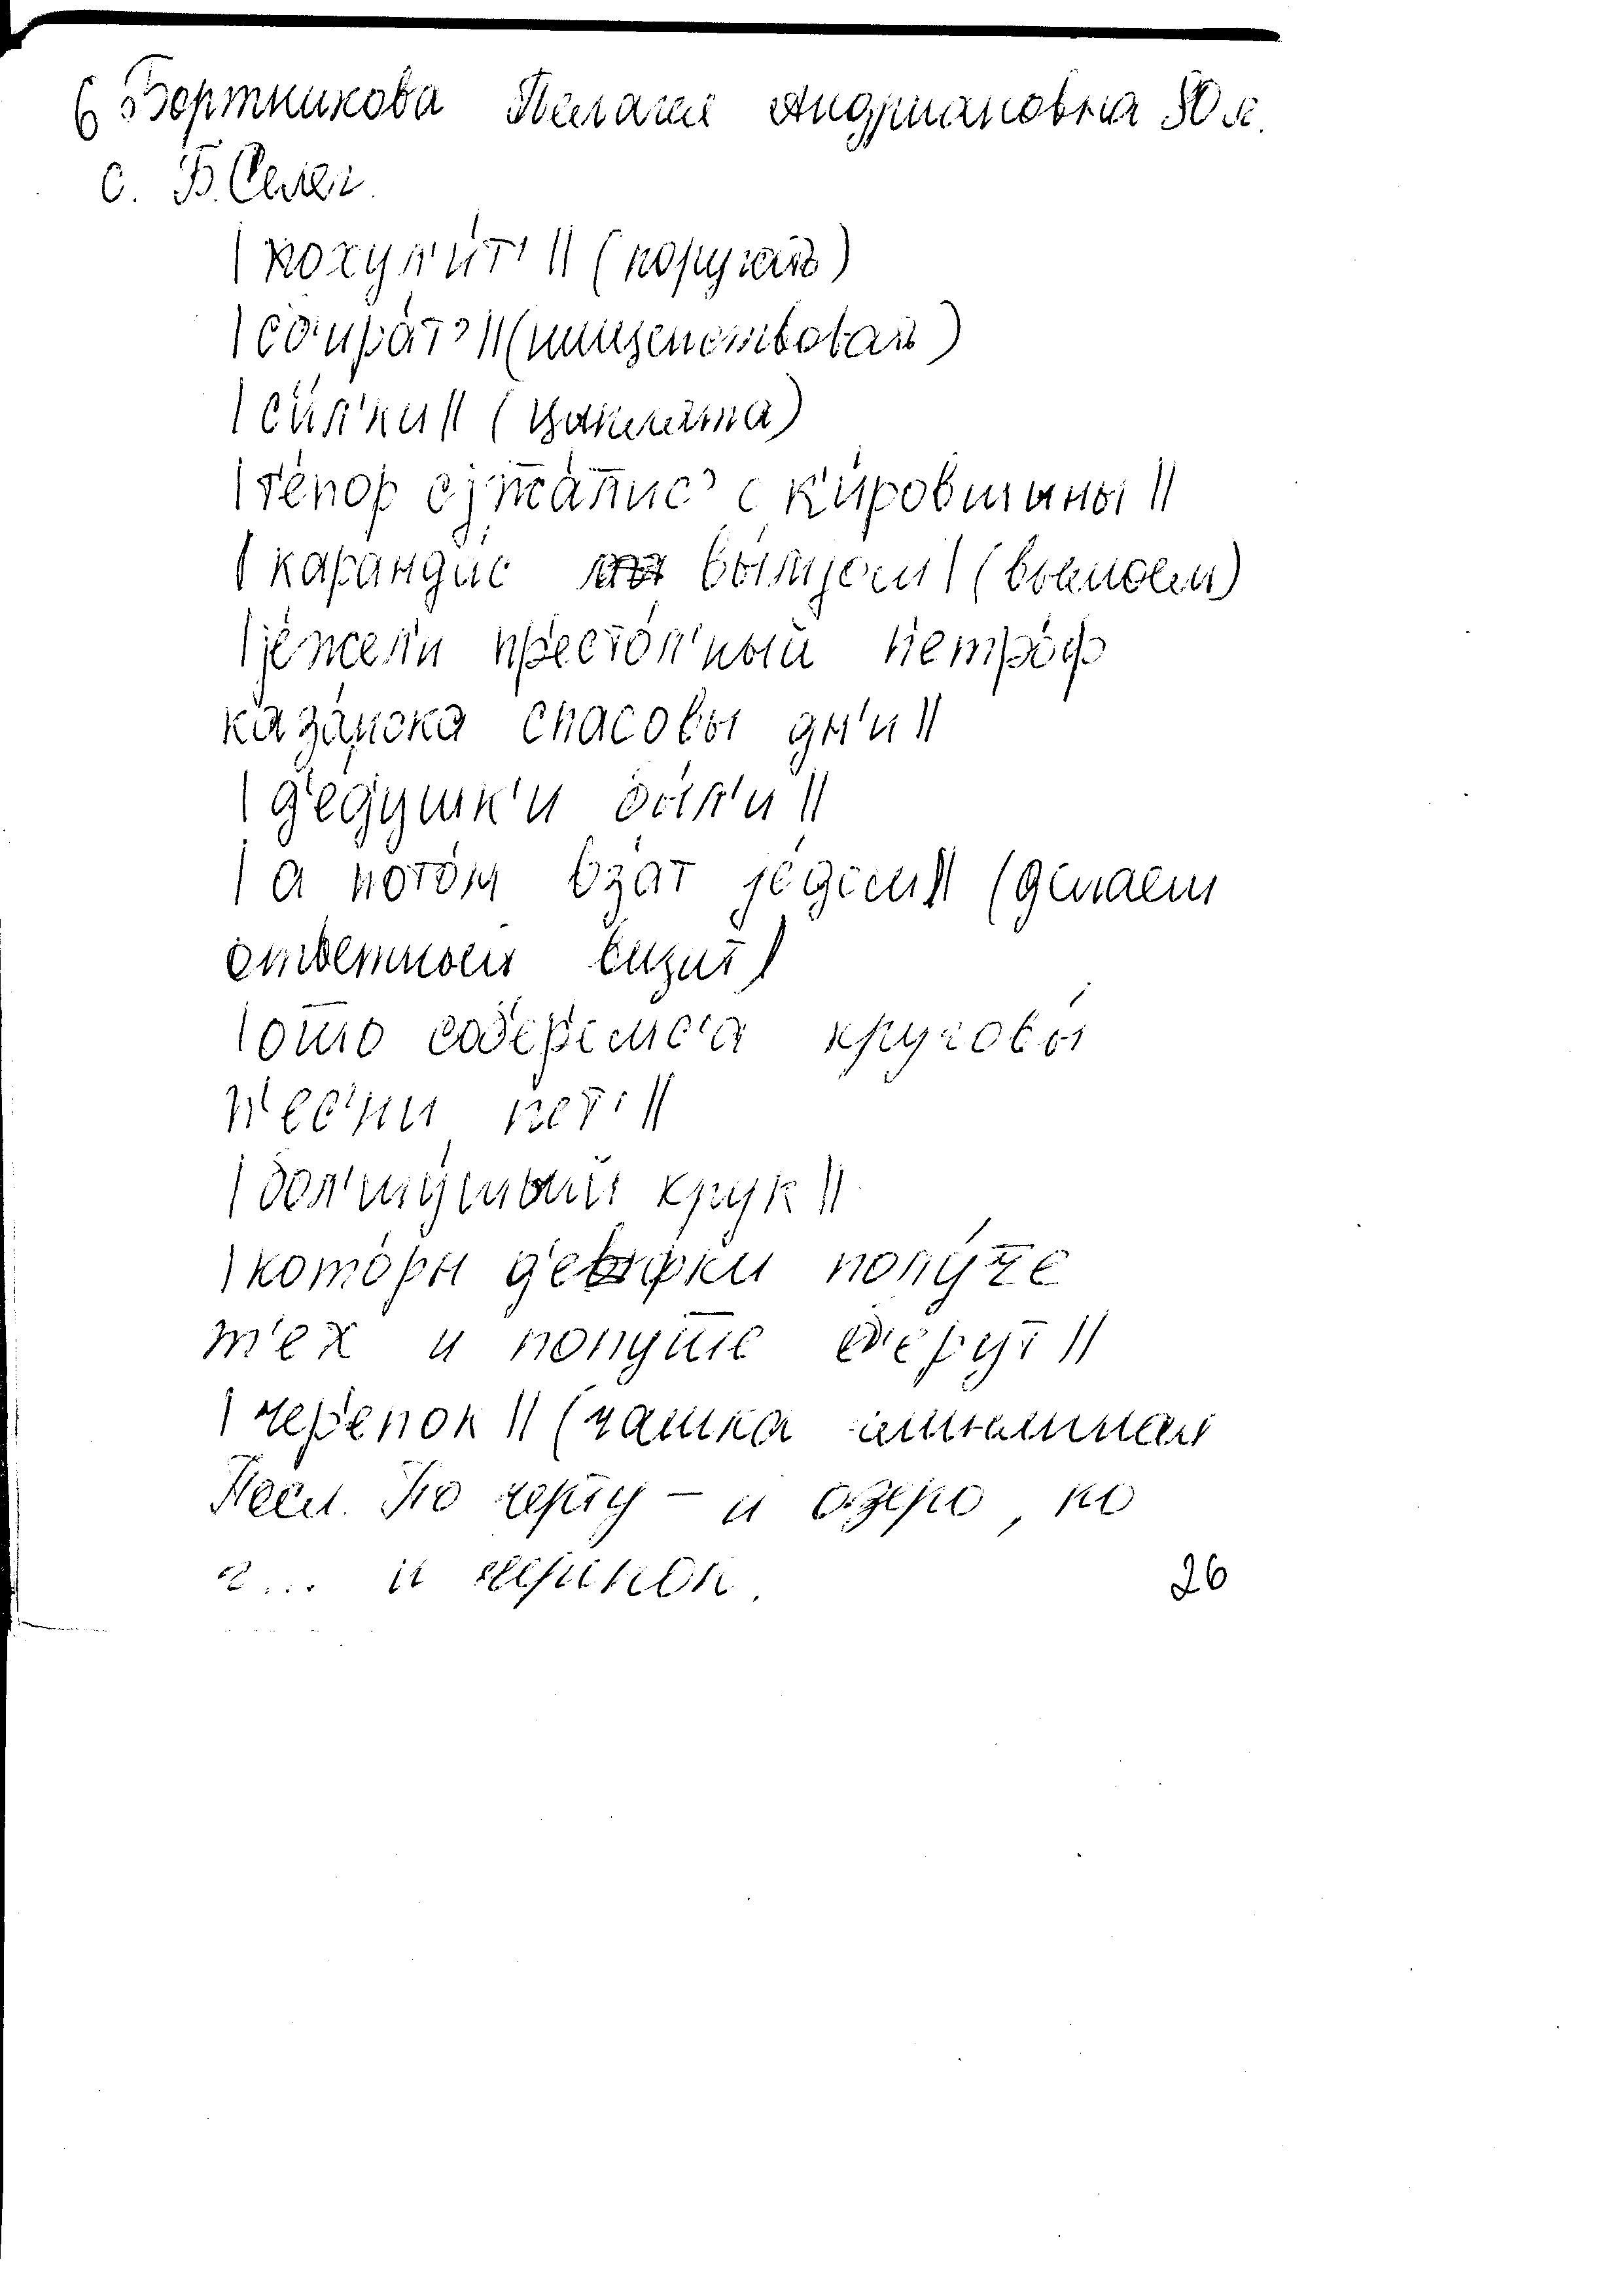 6 Бортникова Пелагея Андриановна 80 л.
с. Б. Селег.
| похул'и́т' || (поругать)
| сб'ира́т' || (нищенствовать)
| си́л'ки || (цыплята)
| те́пор с к'и́ровшины ||
| карандис вы́мјом | (вымоем)
| је́жел'и пр'есто́л'ный п'етро́ф
каза́нска спасовы дн'и ||
| д'е́душк'и был'и ||
| а пото́м вз'ат је́дем || (делаем
ответный визит)
| ошо соб'ер'о́мс'а круговы́
п'ес'ни пет' ||
| бол'шу́шшый крук ||
| кото́ры де́фки полу́ч̅е
т'ех и полуш̅е б'еру́т ||
| чер'епок || (чашка глиняная
Посл. По черту – и озеро, по
г... и черепок.
26